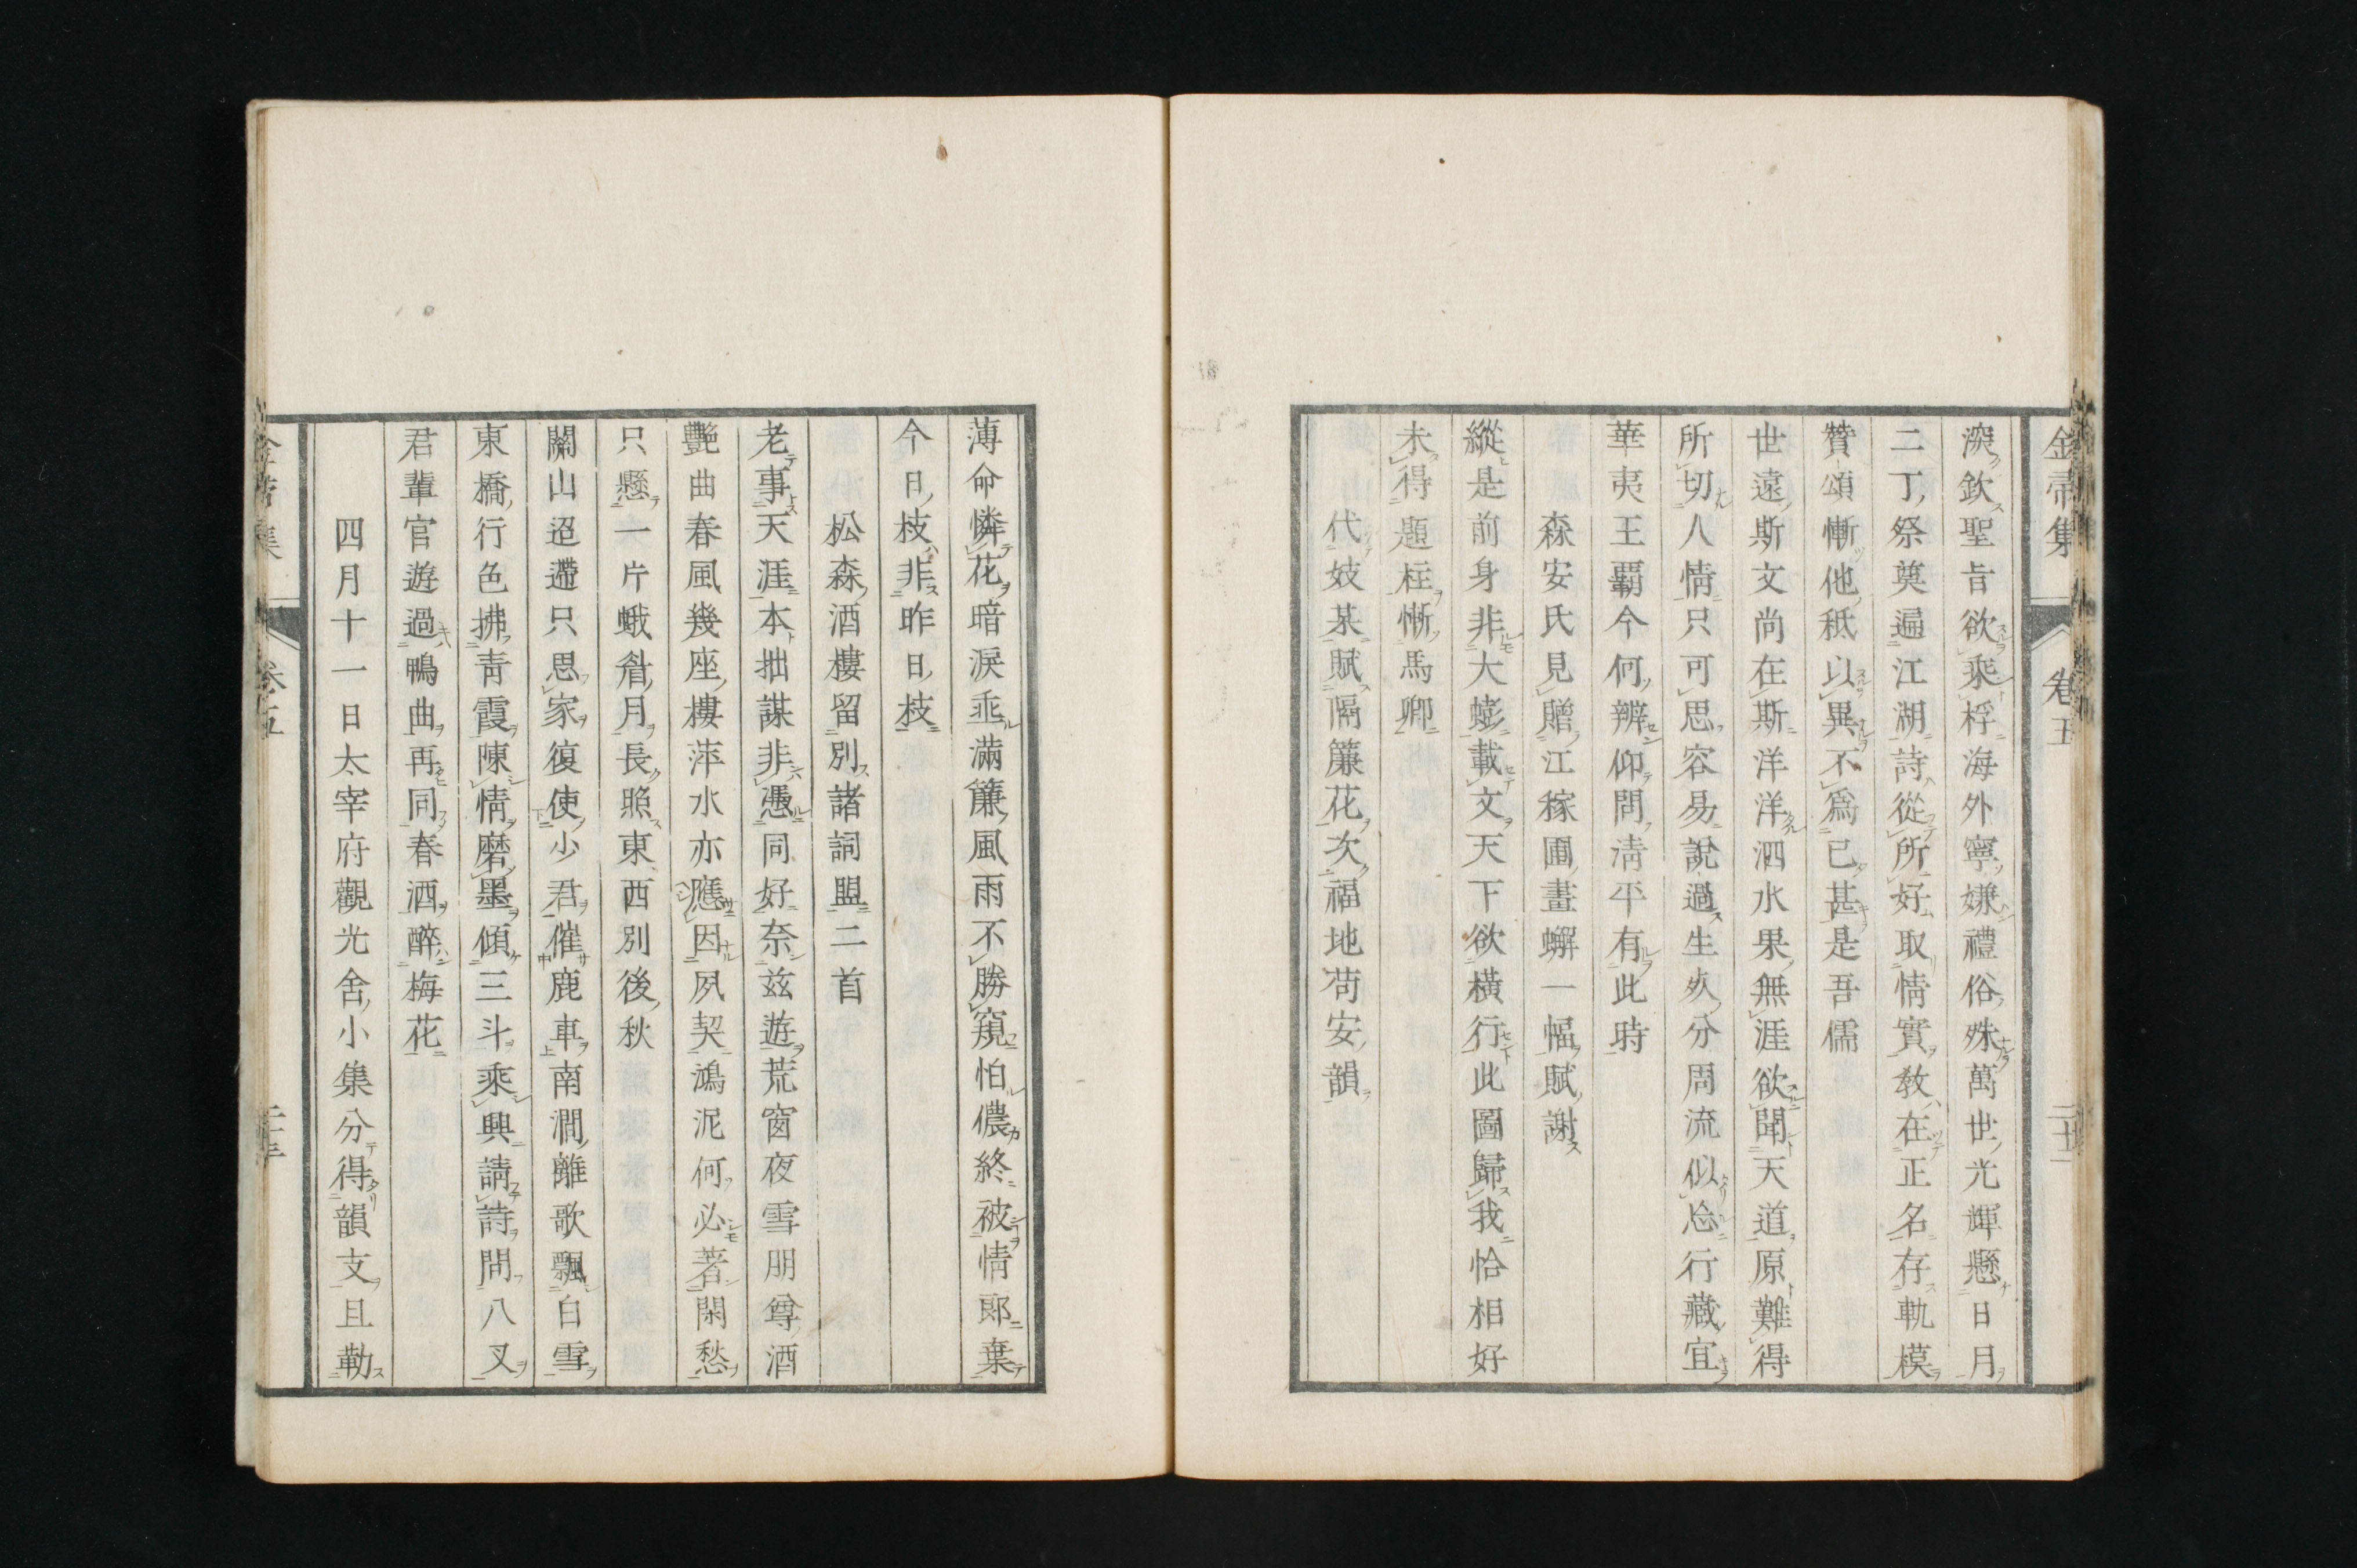 金帚集 卷五
深欽聖旨欲乘桴海外寧嫌禮俗殊萬世光輝懸日月
二丁祭奠遍江湖詩從所好取情實教在正名存軌模
贊頌慚他秪以異不爲已甚是吾儒
世遠斯文尚在斯洋洋泗水果無涯欲聞天道原難得
所切人情只可思容易說過生死分周流似怂行藏宜
華夷王覇今何辨仰問清平有此時
森安氏見贈江稼圃畫蠏一幅賦謝
縱是前身非大蟛載文天下欲橫行此圖歸我恰相好
未得題柱慚馬卿
代妓某賦隔簾花次福地苟安韻
薄命憐花暗淚垂滿簾風雨不勝窺怕儂終被情郎棄
今日枝非昨日枝
松森酒樓留別諸詞盟二首
老事天涯本拙謀非憑同好奈兹遊荒窗夜雪朋尊酒
艷曲春風幾座樓萍水亦應因夙契鴻泥何必著閑愁
只懸一片蛾眉月長照東西別後秋
關山迢遰只思家復使少君催鹿車南澗離歌飄白雪
東橋行色拂靑霞陳情磨墨傾三斗乘興請詩問八叉
君輩官遊過鴨曲再同春酒醉梅花
四月十一日太宰府觀光舍小集分得韻支且勒
卷五